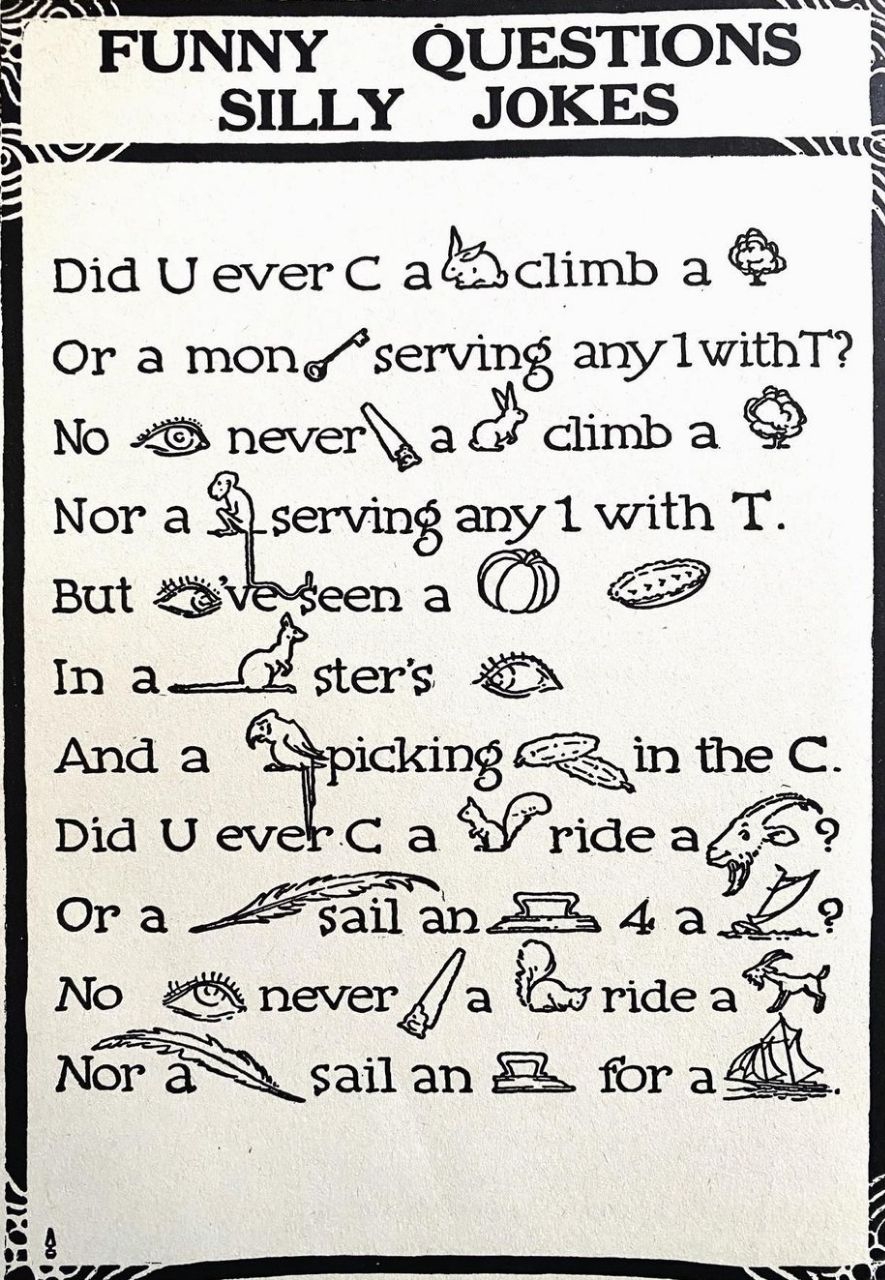 FUNNY QUESTIONS
SILLY JOKES
Did U ever C a climb a
Or a mon serving any 1 with T?
No never a climb a
Nor a serving any 1 with T.
But 've seen a
In a ster's
And a picking in the C.
Did U ever C a ride a ?
Or a sail an 4 a ?
No never a ride a
Nor a sail an for a .